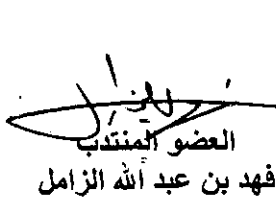 العضو المنتدب
فهد بن عبد الله الزامل